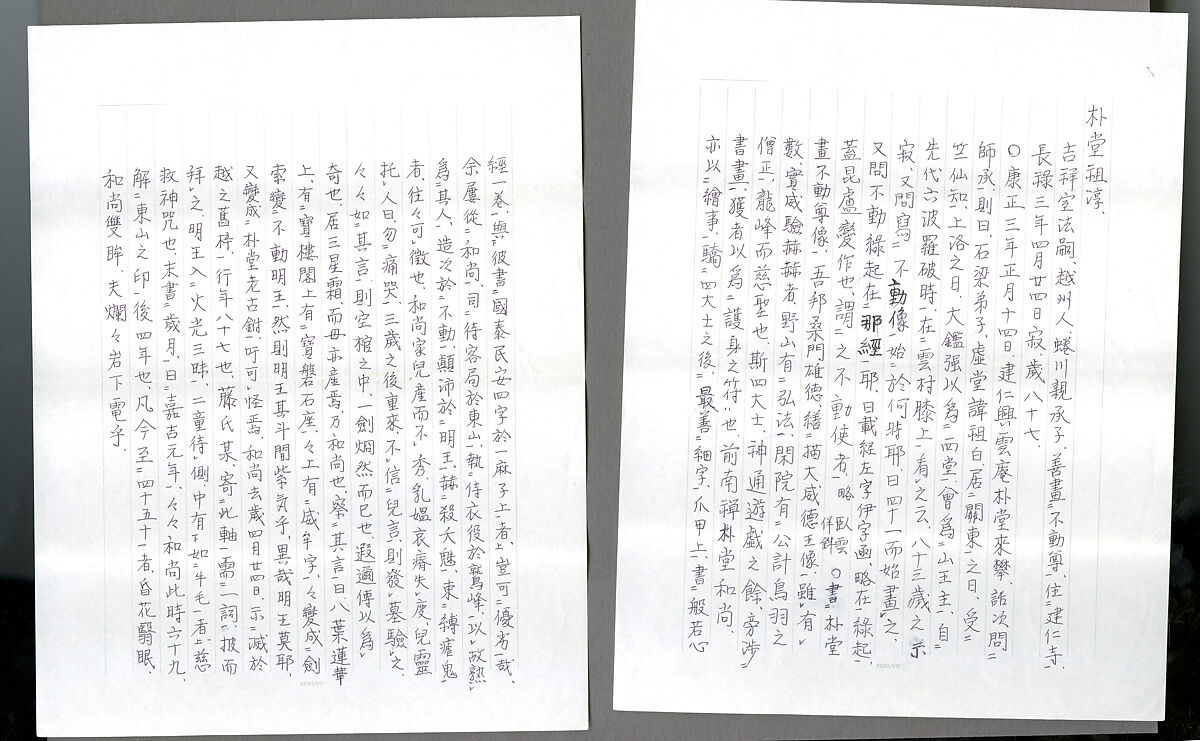 朴堂祖淳、
吉祥室法嗣、越州人、蜷川親承子、善畫不動尊、住建仁寺、
長祿三年四月廿四日寂、歲八十七、
○康正三年正月十四日、建仁興雲庵朴堂來攀、話次問
師承、則曰、石梁弟子、虛堂諱祖白、居關東之日、受
竺仙知、上洛之日、大鑑强以為西堂、會為山主主、自
先代六波羅破時、在雲村膝上看之云、八十三歲之示
寂、又問寫不動像、始於何時耶、曰四十一而始畫之、
又問不動緣起在那經耶、曰載経左字伊字函、略在緣起、
蓋昆盧變作也、謂之不動使者、略 臥雲 ○書朴堂
畫不動尊像、吾邦桑門雄德繕描大威德王像、雖有
數、實威驗赫赫者、野山有弘法、閑院有公計、鳥羽之
僧正、龍峰而慈聖也、斯四大士、神通遊戲之餘、旁渉
書畫、獲者以為護身之符也、前南禅朴堂和尚、
亦以繪事、驕四大士之後、最善細字、爪甲上書般若心
KOKUYO
經一卷、與彼書國泰民安四字於一麻子上者、豈可優劣哉、
余屢從和尚、司待客局於東山、執侍衣役於鷲峰、以故熟
為其人、造次於不動、顛沛於明王、赫殺大魅、束縛瘧鬼
者、往々可徵也、和尚家兒産而不秀、乳媼哀瘠失度、兒靈
托人曰、勿痛哭、三歲之後重來、不信兒言、則發墓驗之、
々々如其言、則空棺之中、一劍烱然而已也、遐邇傳以為
奇也、居三星霜、而母亦産焉、乃和尚也、察其言曰、八葉蓮華
上、有寶樓閣、上有寶磐石座、々上有威牟字、々變成劍
索變不動明王、然則明王其斗間紫気乎、異哉明王莫耶、
又變成朴堂老古錐、吁可怪焉、和尚去歲四月廿四日、示滅於
越之舊梓、行年八十七也、藤氏某、寄此軸需一詞、披而
拜之、明王入火光三昧、二童待側、中有如牛毛者、慈
救神咒也、末書歲月、曰嘉吉元年、々々和尚此時六十九、
解東山之印後四年也、凡今至四十五十者、昏花翳眠、
和尚雙眸、夫爛々岩下電乎、
KOKUYO